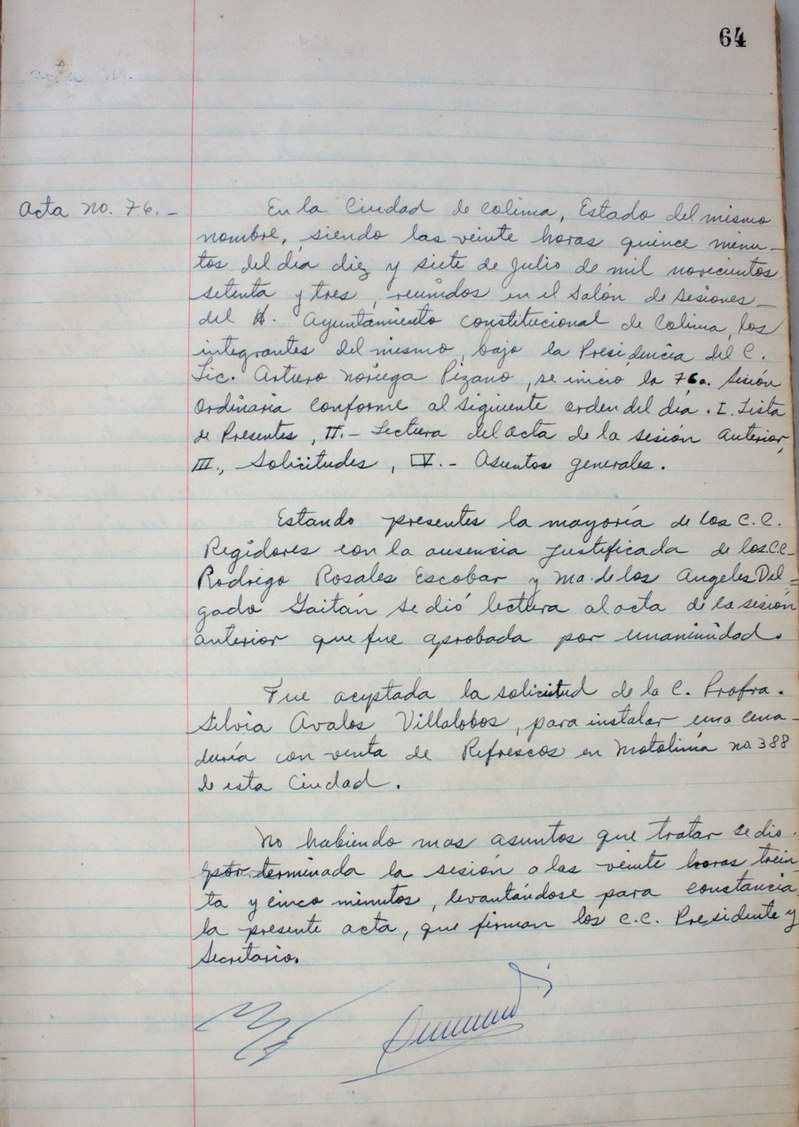 64
Acta no. 76.-
En la Ciudad de Colima, Estado del mismo
nombre, siendo las veinte horas quince minu-
tos del día diez y siete de Julio de mil novecientos
setenta y tres, reunidos en el salón de sesiones
del H. Ayuntamiento constitucional de Colima, los
integrantes del mismo, bajo la Presidencia del C.
Lic. Arturo Noriega Pizano, se inició la 76a. Sesión
Ordinaria conforme al siguiente orden del día. I. Lista
de Presentes, II.- Lectura del acta de la sesión anterior,
III., Solicitudes, IV.- Asuntos generales.
Estando presentes la mayoría de los C.C.
Regidores con la ausencia justificada de los CC.
Rodrigo Rosales Escobar y Ma. de los Angeles Del=
gado Gaitán se dió lectura al acta de la sesión
anterior que fue aprobada por unanimidad.
Fue aceptada la solicitud de la C. Profra.
Silvia Avalos Villalobos, para instalar una cena-
duría con venta de Refrescos en Motolinía no. 388
de esta Ciudad.
No habiendo mas asuntos que tratar se dio
por terminada la sesión a las veinte horas trein
ta y cinco minutos, levantándose para constancia
la presente acta, que firman los C.C. Presidente y
Secretario.